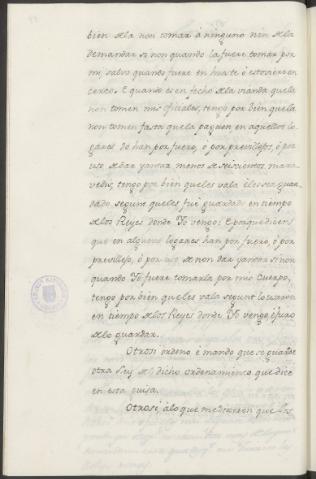 bien de la non tomar á ninguno nin de la
demandar si non quando la fuere tomar por
mi, salvo quando fuere en hueste ó estoviere en
cerco. E quanto es en fecho de la vianda que la
non tomen mis oficiales, tengo por bien que la
non tomen fasta que la paguen en aquellos lo-
gares do han por fuero, ó por previllejo, ó por
uso de dar yantar menos de seiscientos mara-
vedis, tengo por bien que les vala é les sea guar-
dado segunt que les fué guardado en tiempo
de los Reyes donde Yo vengo: E porque dicen
que en algunos logares han por fuero, ó por
previllejo, ó por uso de non dar yantar si non
quando Yo fuere tomarla por mio cuerpo,
tengo por bien que les vala segunt lo usaron
en tiempo de los Reyes donde Yo vengo, é juro
de lo guardar.
Otrosi ordeno é mando que se guarde
otra Ley del dicho ordenamiento que dice
en esta guisa.
Otrosi, á lo que me dixeron que los